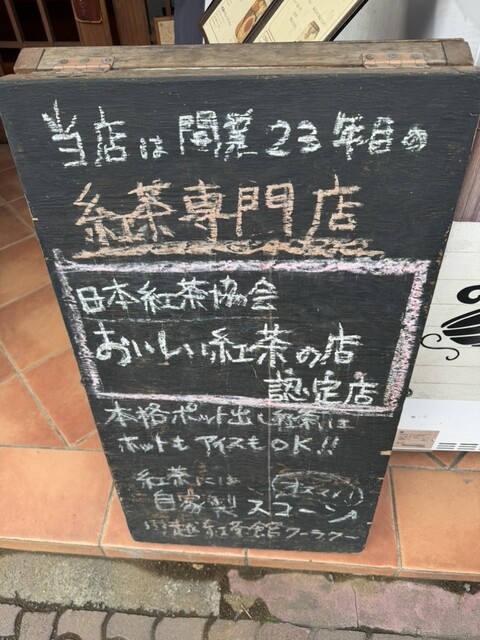 当店は開業23年目の
紅茶専門店
日本紅茶協会
おいしい紅茶の店
認定店
本格ポット出し紅茶は
ホットもアイスもOK!!
紅茶には
自家製スコーン
川越紅茶館フーラフー